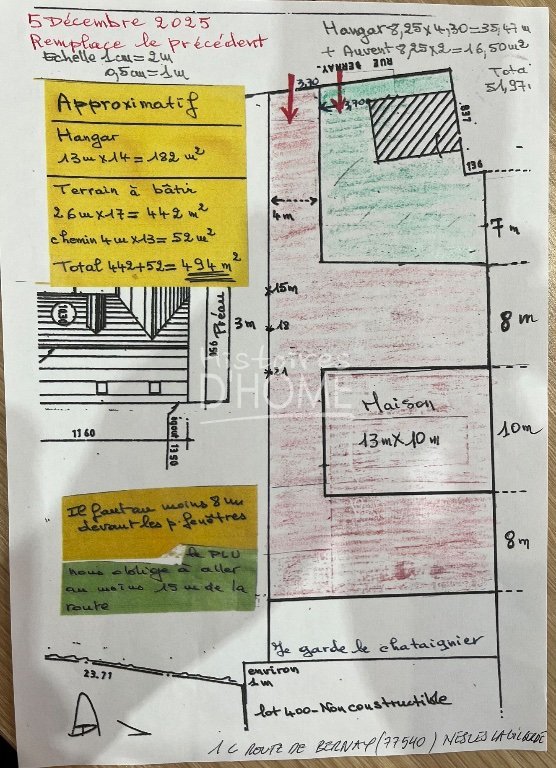 5 Décembre 2025
Remplace le précédent
Echelle 1cm = 2m
0,5cm = 1m
Hangar 8,25 x 4,30 = 35,47 m
+ Auvent 8,25 x 2 = 16,50 m²
Total
51,97
RUE BERNAY
3,70
3,70
837
136
Approximatif
Hangar
13m x 14 = 182 m²
Terrain à bâtir
26m x 17 = 442 m²
chemin 4m x 13 = 52 m²
Total 442+52 = 494 m²
4 m
7 m
15m
18
21
3m
8 m
1130
Préau
956
Histoires
D'HOME
Maison
13m X 10m
10m
1160
égout 1350
Il faut au moins 8 m
devant les p. fenêtres
le PLU
nous oblige à aller
au moins 15 m de la
route
8 m
Je garde le chataignier
23.71
environ
1m
lot 400 - Non constructible
1 C ROUTE DE BERNAY (77540) NESLES LA GILBERDE